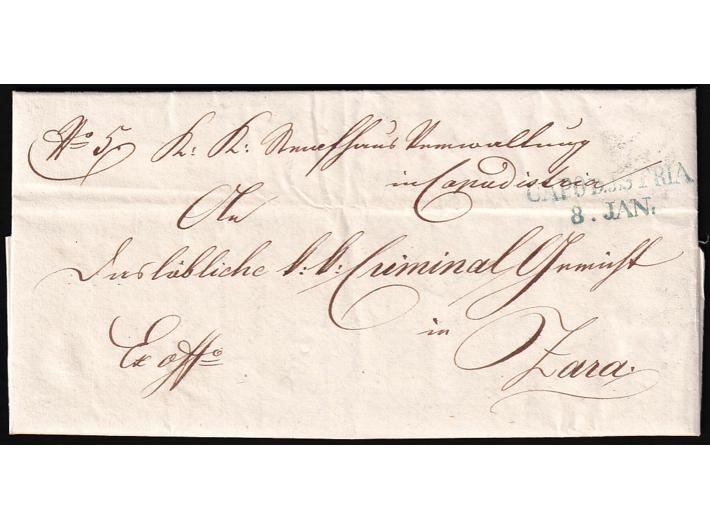 No 5. K: K: Strafhaus Verwaltung
in Capodistria
CAPO D'ISTRIA
8. JAN:
An
Das löbliche k: k: Criminal Gericht
in
Ex offo
Zara.